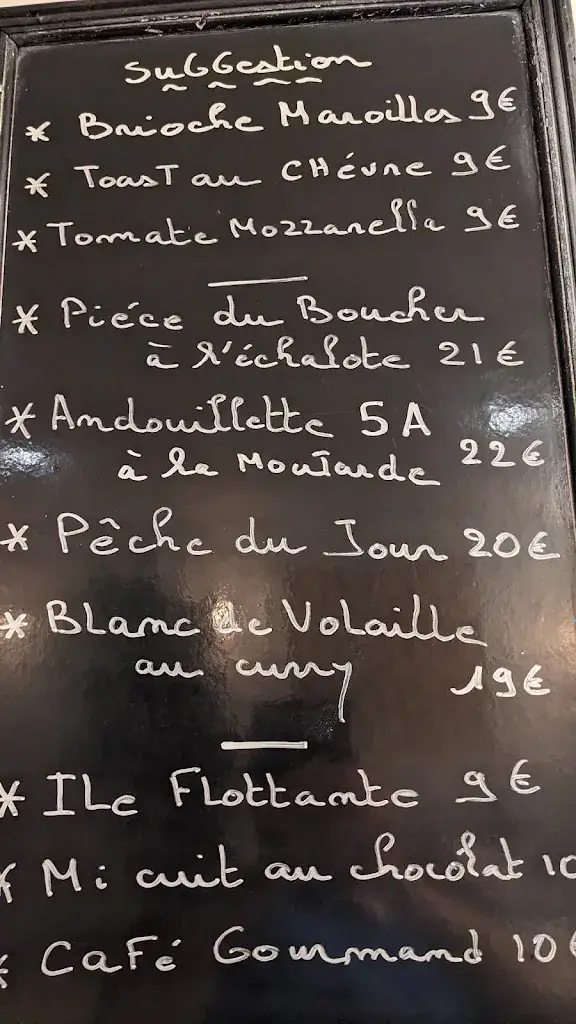 SuGGestion
* Brioche Maroilles 9€
* ToasT au CHévre 9€
* Tomate Mozzarella 9€
* Piéce du Boucher
à l'échalote 21€
* Andouillette 5A
à la Moutarde 22€
* Pêche du Jour 20€
* BLanc de VoLaille
au curry 19€
* ILe FLottante 9€
* Mi cuit au chocolat 10
* CaFé Gourmand 10€